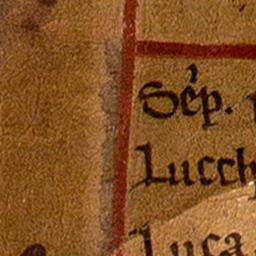 Sép.
Lucch
Luca